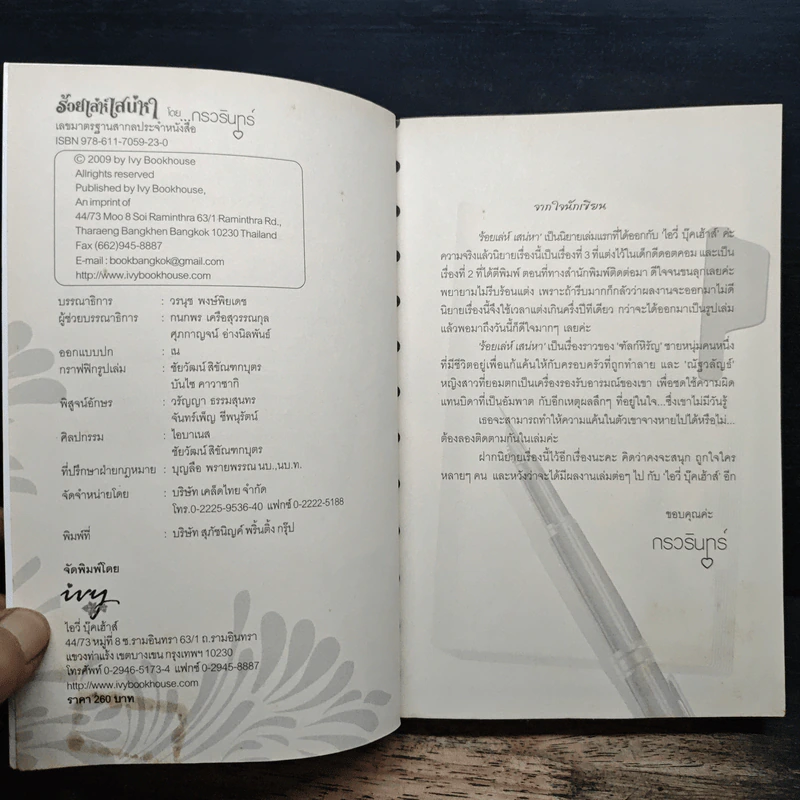 ร้อยเล่ห์เสน่หา โดย...กรวรินทร์
เลขมาตรฐานสากลประจำหนังสือ
ISBN 978-611-7059-23-0
© 2009 by Ivy Bookhouse
Allrights reserved
Published by Ivy Bookhouse,
An imprint of
44/73 Moo 8 Soi Raminthra 63/1 Ramintra Rd.,
Tharaeng Bangkhen Bangkok 10230 Thailand
Fax (662)945-8887
E-mail : bookbangkok@gmail.com
http://www.ivybookhouse.com
บรรณาธิการ : วรนุช พงษ์พิยเดช
ผู้ช่วยบรรณาธิการ : กนกพร เครือสุวรรณกุล
ศุภกาญจน์ อ่างนิลพันธ์
ออกแบบปก : ณ
กราฟฟิกรูปเล่ม : ชัยวัฒน์ สิขัณฑกบุตร
บันไซ คาวาซากิ
พิสูจน์อักษร : วรัญญา ธรรมสุนทร
จันทร์เพ็ญ ชีพนุรัตน์
ศิลปกรรม : ไอบาเนส
ชัยวัฒน์ สิขัณฑกบุตร
ที่ปรึกษาฝ่ายกฎหมาย : บุญลือ พรายพรรณ นบ.,นบ.ท.
จัดจำหน่ายโดย : บริษัท เคล็ดไทย จำกัด
โทร.0-2225-9536-40 แฟกซ์ 0-2222-5188
พิมพ์ที่ : บริษัท สุภัชนิญค์ พริ้นติ้ง กรุ๊ป
จัดพิมพ์โดย
ivy
ไอวี่ บุ๊คเฮ้าส์
44/73 หมู่ที่ 8 ซ.รามอินทรา 63/1 ถ.รามอินทรา
แขวงท่าแร้ง เขตบางเขน กรุงเทพฯ 10230
โทรศัพท์ 0-2946-5173-4 แฟกซ์ 0-2945-8887
http://www.ivybookhouse.com
ราคา 260 บาท
จากใจนักเขียน
'ร้อยเล่ห์ เสน่หา' เป็นนิยายเล่มแรกที่ได้ออกกับ 'ไอวี่ บุ๊คเฮ้าส์' ค่ะ
ความจริงแล้วนิยายเรื่องนี้เป็นเรื่องที่ 3 ที่แต่งไว้ในเด็กดีดอตคอม และเป็น
เรื่องที่ 2 ที่ได้ตีพิมพ์ ตอนที่ทางสำนักพิมพ์ติดต่อมา ดีใจจนขนลุกเลยค่ะ
พยายามไม่รีบร้อนแต่ง เพราะถ้ารีบมากก็กลัวว่าผลงานจะออกมาไม่ดี
นิยายเรื่องนี้จึงใช้เวลาแต่งเกินครึ่งปีทีเดียว กว่าจะได้ออกมาเป็นรูปเล่ม
แล้วพอมาถึงวันนี้ก็ดีใจมากๆ เลยค่ะ
'ร้อยเล่ห์ เสน่หา' เป็นเรื่องราวของ 'ฑัลก์หิรัญ' ชายหนุ่มคนหนึ่ง
ที่มีชีวิตอยู่เพื่อแก้แค้นให้กับครอบครัวที่ถูกทำลาย และ 'ณัฐวลัญช์'
หญิงสาวที่ยอมตกเป็นเครื่องรองรับอารมณ์ของเขา เพื่อชดใช้ความผิด
แทนบิดาที่เป็นอัมพาต กับอีกเหตุผลลึกๆ ที่อยู่ในใจ...ซึ่งเขาไม่มีวันรู้
เธอจะสามารถทำให้ความแค้นในตัวเขาจางหายไปได้หรือไม่...
ต้องลองติดตามกันในเล่มค่ะ
ฝากนิยายเรื่องนี้ไว้อีกเรื่องนะคะ คิดว่าคงจะสนุก ถูกใจใคร
หลายๆ คน และหวังว่าจะได้มีผลงานเล่มต่อๆ ไป กับ 'ไอวี่ บุ๊คเฮ้าส์' อีก
ขอบคุณค่ะ
กรวรินทร์